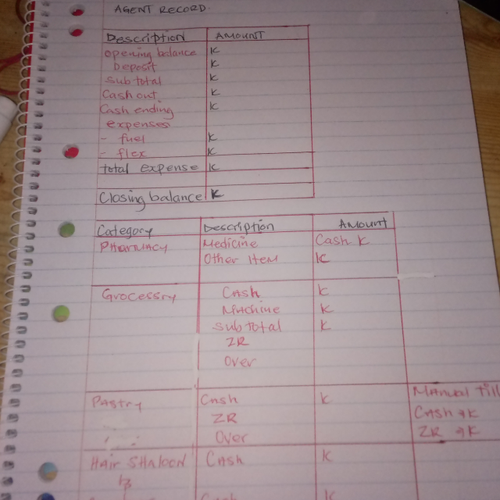 AGENT RECORD.
Description AMOUNT
opening balance K
Deposit K
sub total K
Cash out K
Cash ending K
expenses
- fuel K
- flex K
total expense K
Closing balance K
Category Description AMOUNT
PHARMACY Medicine Cash K
Other Item K
Grocessry Cash K
Machine K
sub total K
ZR
Over
Pastry Cash K Manual Till
ZR Cash K
Over ZR K
HAIR SHALOON Cash K
Cash K